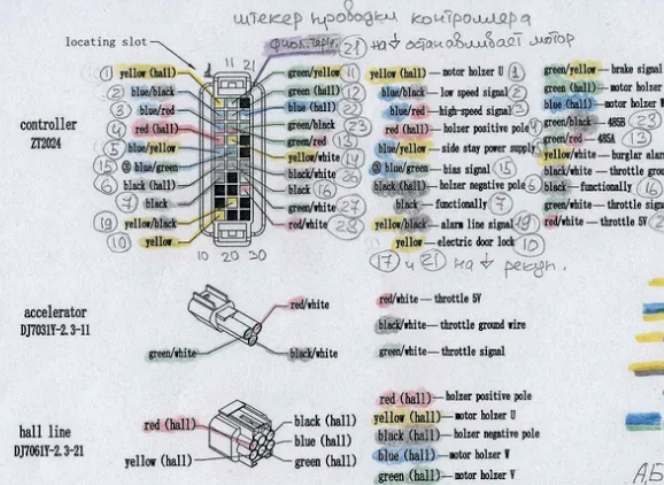 штекер проводки контроллера
locating slot
фиол.черн. 21 на ↓ останавливает мотор
1 11 21
1 yellow (hall)
2 blue/black
3 blue/red
4 red (hall)
5 blue/yellow
15 blue/green
6 black (hall)
7 black
19 yellow/black
10 yellow
controller
ZT2024
green/yellow 11
green (hall) 12
blue (hall) 22
green/black 23
green/red 13
yellow/white 14
black/white 26
black 16
green/white 27
red/white 28
10 20 30
yellow (hall) — motor holzer U 1
blue/black — low speed signal 2
blue/red — high-speed signal 3
red (hall) — holzer positive pole 4
blue/yellow — side stay power supply
blue/green — bias signal 15
black (hall) — holzer negative pole 6
black — functionally 7
yellow/black — alarm line signal 19
yellow — electric door lock 10
17 и 21 на ↓ рекуп.
green/yellow — brake signal
green (hall) — motor holzer
blue (hall) — motor holzer
green/black — 485B 23
green/red — 485A 13
yellow/white — burglar alarm
black/white — throttle
black — functionally 16
green/white — throttle
red/white — throttle 5V
accelerator
DJ7031Y-2.3-11
red/white
green/white
black/white
red/white — throttle 5V
black/white — throttle ground wire
green/white — throttle signal
hall line
DJ7061Y-2.3-21
red (hall)
yellow (hall)
black (hall)
blue (hall)
green (hall)
red (hall) — holzer positive pole
yellow (hall) — motor holzer U
black (hall) — holzer negative pole
blue (hall) — motor holzer W
green (hall) — motor holzer V
А,Б